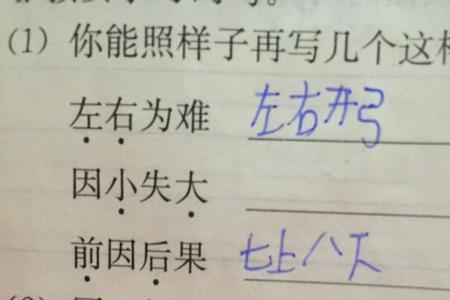 (1) 你能照样子再写几个这
左右为难 左右开弓
因小失大
前因后果 七上八下